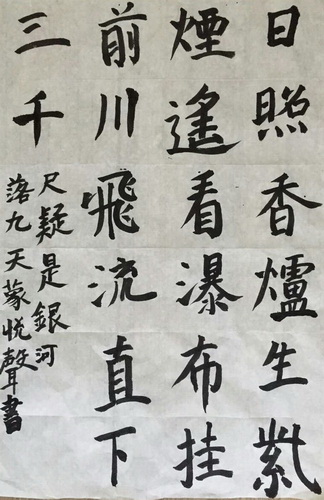 日照香爐生紫
煙遙看瀑布挂
前川飛流直下
三千
尺疑是銀河
落九天蒙悦聲書